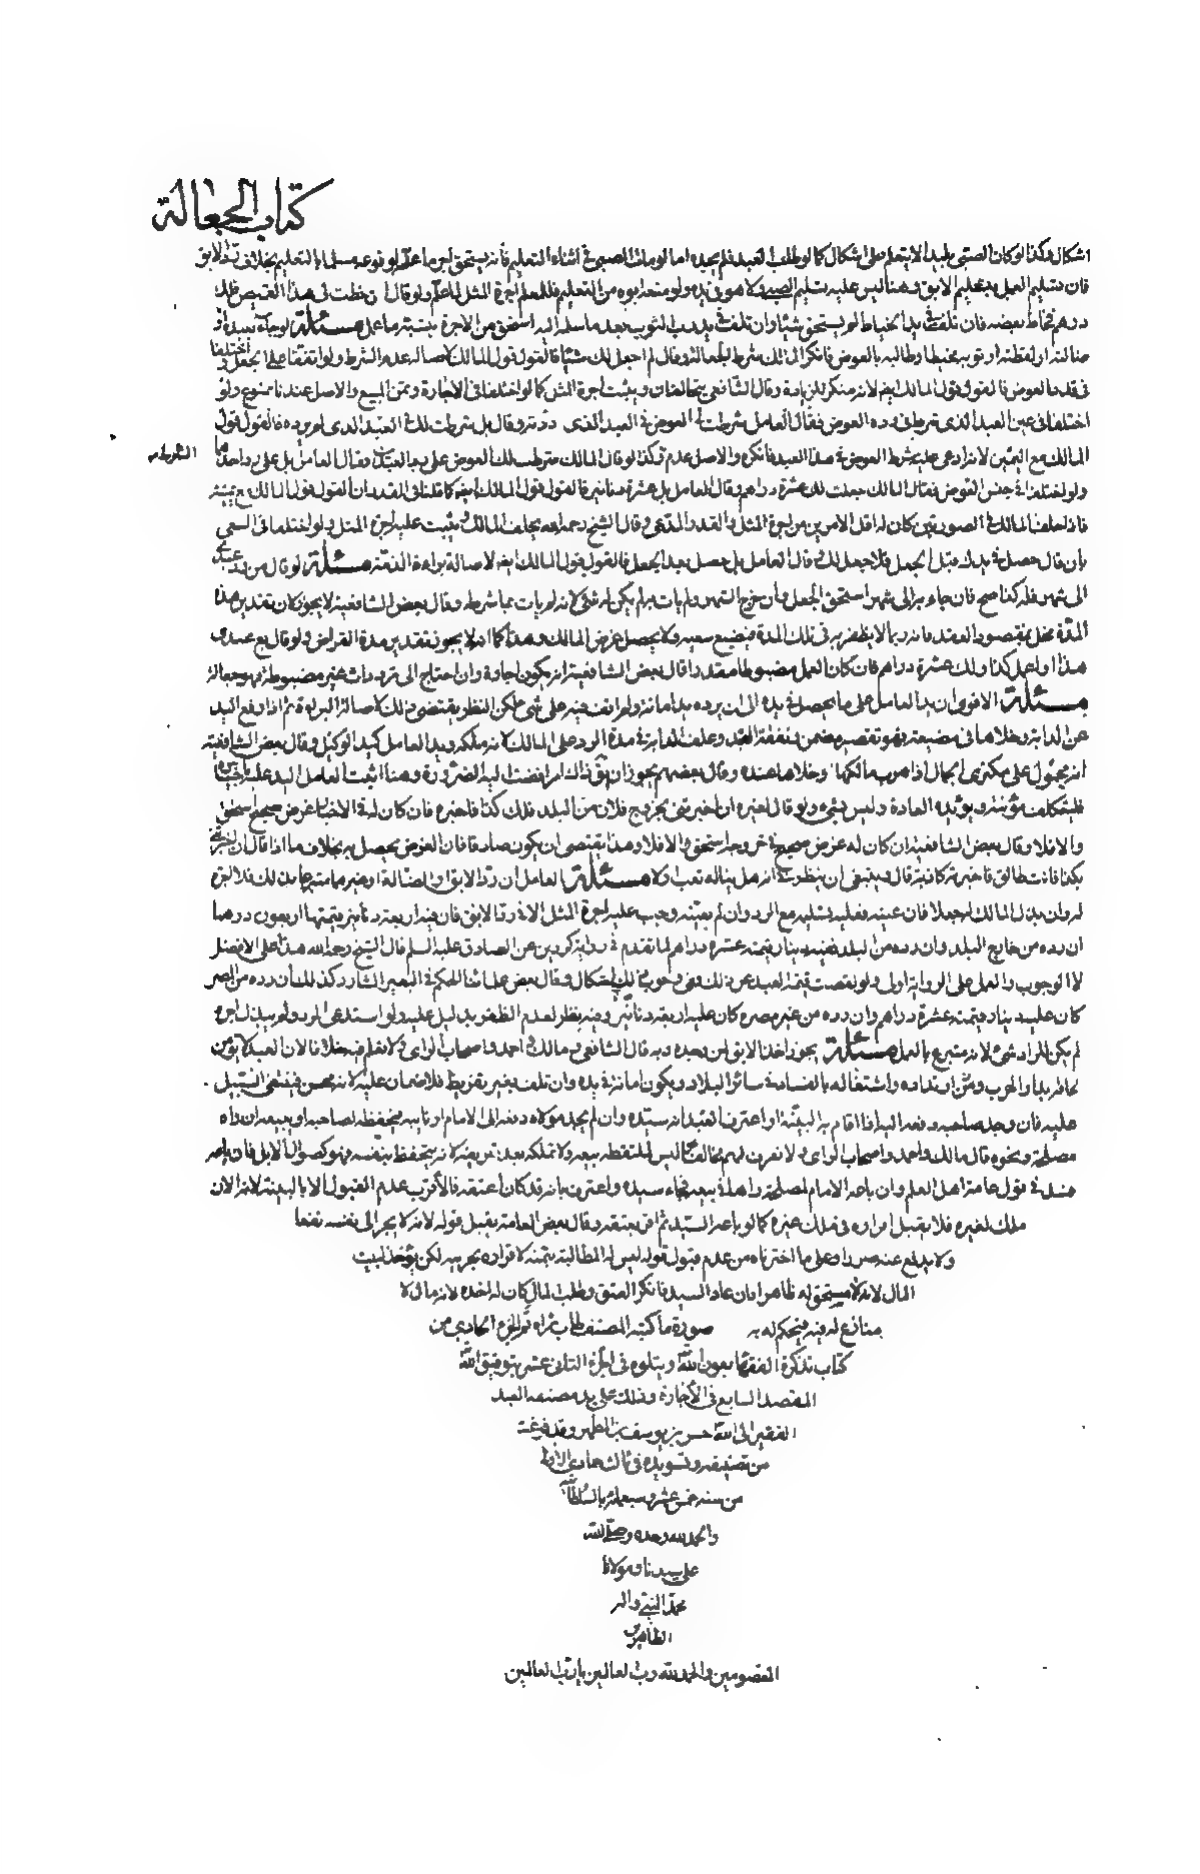 كتاب الجعالة
اشكال وكذا لو كان الصبي بليدا لا يتعلم على اشكال كما لو طلب العبد فلم يجده اما لو مات الصبي في اثناء التعليم فانه يستحق اجر ما علمه لوقوعه مسلما بالتعليم بخلاف رد الابق
فان تسليم العمل بتسليم الابق وهنا ليس عليه تسليم الصبي ولا هو في يده ولو منعه ابوه من التعليم فللمعلم اجرة المثل لما علم ولو قال ان خطت لي هذا القميص فلك
درهم فخاط بعضه فان تلف في يد الخياط لم يستحق شيئا وان تلف في يد رب الثوب بعد ما سلمه اليه استحق من الاجرة بنسبة ما عمل مسئلة لو جاء بعبده او
ضالته او لقطته او ثوبه مخيطا وطالبه بالعوض فانكر المالك شرط الجعالة وقال لم اجعل لك شيئا فالقول قول المالك لاصالة عدم الشرط ولو اتفقا على الجعل واختلفا
في قدر العوض فالقول قول المالك ايضا لانه منكر للزيادة وقال الشافعي يتحالفان ويثبت اجرة المثل كما لو اختلفا في الاجارة وثمن المبيع والاصل عندنا ممنوع ولو
اختلفا في عين العبد الذي شرط في رده العوض فقال العامل شرطت لي العوض في العبد الذي رددته وقال بل شرطت لك في العبد الذي لم ترده فالقول قول
المالك مع اليمين لانه ادعى عليه شرط العوض في هذا العبد فانكره والاصل عدم ذلك وكذا لو قال المالك شرطت لك العوض على رد العبدين معا فقال العامل بل على رد احدهما
ولو اختلفا في جنس العوض فقال المالك جعلت لك عشرة دراهم وقال العامل بل عشرة دنانير فالقول قول المالك ايضا كما قلنا في القدر ان القول قول المالك مع يمينه
فاذا حلف المالك في الصورتين كان له اقل الامرين من اجرة المثل والقدر المدعى وقال الشيخ رحمه الله يحلف المالك ويثبت عليه اجرة المثل ولو اختلفا في السعي
بان قال حصل في يدك قبل الجعل فلا جعل لك وقال العامل بل حصل بعد الجعل فالقول قول المالك ايضا لاصالة براءة الذمة مسئلة لو قال من رد عبدي
الى شهر فله كذا صح فان جاء به الى شهر استحق الجعل وان خرج الشهر ولم يات به لم يكن له شئ لانه لم يات بما شرطه وقال بعض الشافعية لا يجوز لان تقدير هذه
المدة مخل بمقصود العقد فانه ربما لا يظفر به في تلك المدة فيضيع سعيه ولا يحصل غرض المالك وهذا كما انه لا يجوز تقدير مدة القراض ولو قال بع عبدي
هذا او اعمل كذا ولك عشرة دراهم فان كان العمل مضبوطا مقدرا قال بعض الشافعية انه يكون اجارة وان احتاج الى ترددات غير مضبوطة فهو جعالة
مسئلة الاقوى ان يد العامل على ما يحصل في يده الى ان يرده يد امانة ولم اقف فيه على شئ لكن النظر يقتضي ذلك لاصالة البراءة ثم اذا رفع اليد
عن الدابة وخلاها في مضيعة فهو تقصير مضمن ونفقة العبد وعلف الدابة في مدة الرد على المالك لانه ملكه ويد العامل كيد الوكيل وقال بعض الشافعية
انه محمول على مكتري الجمال اذا هرب مالكها وخلاها عنده وقال بعضهم يجوز ان يقال ذاك امر افضت اليه الضرورة وهنا اثبت العامل اليد عليه باختياره
فليتكلف مؤنته ويؤيده العادة وليس بشئ ولو قال لغيره ان اخبرتني بخروج فلان من البلد فلك كذا فاخبره فان كان له في الاخبار غرض صحيح استحق
والا فلا وقال بعض الشافعية ان كان له غرض صحيح في خروجه استحق والا فلا وهذا يقتضي ان يكون صادقا فان الغرض يحصل به بخلاف ما اذا قال ان اخبرتني
بكذا فانت طالق فاخبرته كاذبة قال وينبغي ان ينظر في انه هل يناله تعب او لا مسئلة العامل ان رد الابق او الضالة او غيرهما متبرعا بذلك فلا اجرة
له وان بذل المالك له جعلا فان عينه فعليه تسليمه مع الرد وان لم يعينه وجب عليه اجرة المثل الا في رد الابق فان فيه اربعة دنانير قيمتها اربعون درهما
ان رده من خارج البلد وان رده من البلد ففيه دينار قيمته عشرة دراهم لما تقدم في رواية كردين عن الصادق عليه السلم قال الشيخ رحمه الله هذا على الافضل
لا الوجوب والعمل على الرواية اولى ولو نقصت قيمة العبد عن ذلك ففي وجوب ذلك اشكال وقال بعض علمائنا الحكم في البعير الشارد كذلك ان رده من المصر
كان عليه دينار قيمته عشرة دراهم وان رده من غير مصره كان عليه اربعة دنانير وفيه نظر لعدم الظفر بدليل عليه ولو استدعى الرد ولم يبذل اجرة
لم يكن للراد شئ لانه متبرع بالعمل مسئلة يجوز اخذ الابق لمن وجده وبه قال الشافعي ومالك واحمد واصحاب الراي ولا نعلم فيه خلافا لان العبد لا يؤمن
لحاقه بدار الحرب وارتداده واشتغاله بالفساد في سائر البلاد ويكون امانة في يده وان تلف بغير تفريط فلا ضمان عليه لانه محسن فينتفي السبيل
عليه فان وجد صاحبه دفعه اليه اذا اقام به البينة او اعترف العبد انه سيده وان لم يجد مولاه دفعه الى الامام او نائبه فيحفظه لصاحبه او يبيعه ان راه
مصلحة ونحوه قال مالك واحمد واصحاب الراي ولا نعرف لهم مخالفا وليس للملتقط بيعه ولا تملكه بعد تعريفه لانه يتحفظ بنفسه فهو كضوال الابل فان باعه
فسد في قول عامة اهل العلم وان باعه الامام لمصلحة راها في بيعه فجاء سيده واعترف بانه قد كان اعتقه فالاقرب عدم القبول الا بالبينة لانه الان
ملك لغيره فلا يقبل اقراره في ملك غيره كما لو باعه السيد ثم اقر بعتقه وقال بعض العامة يقبل قوله لانه لا يجر الى نفسه نفعا
ولا يدفع عنه ضررا وعلى ما اخترناه من عدم قبول قوله ليس له المطالبة بثمنه لاقراره بحريته لكن يؤخذ لبيت
المال لانه لا مستحق له ظاهرا فان عاد السيد فانكر العتق وطلب المال كان له اخذه لانه مال لا
منازع له فيه فيحكم له به صورة ما كتبه المصنف طاب ثراه تم الجزء الحادي من
كتاب تذكرة الفقهاء بعون الله ويتلوه في الجزء الثاني عشر بتوفيق الله
المقصد السابع في الاجارة وذلك على يد مصنفه العبد
الفقير الى الله حسن بن يوسف بن المطهر وقد فرغت
من تصنيفه وتسويده في ثالث جمادى الاولى
من سنة خمس عشرة وسبعمائة بالسلطانية
والحمد لله وحده وصلى الله
على سيدنا ومولانا
محمد النبي واله
الطاهرين
المعصومين والحمد لله رب العالمين يا رب العالمين